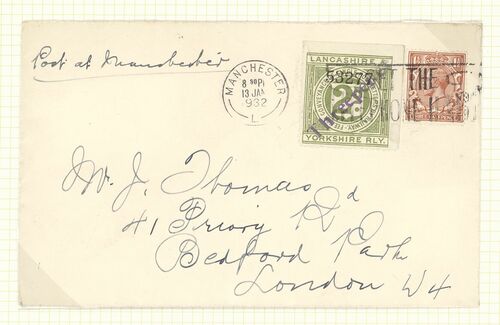 Post at Manchester
MANCHESTER
8 30 PM
13 JAN
1932
L
LANCASHIRE &
53277
2D
YORKSHIRE RLY.
THE
Mr. J. Thomas
41 Priory Rd
Bedford Park
London W4